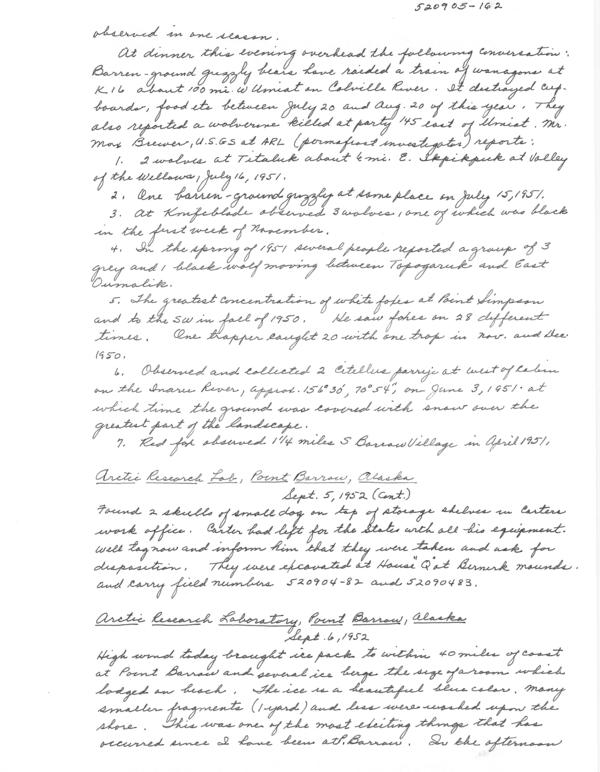 520905-162
observed in one season.
At dinner this evening overhead the following conversation:
Barren-ground grizzly bears have raided a train of wanagons at
K-16 about 100 mi. W Umiat on Colville River. It destroyed cup-
boards, food etc between July 20 and Aug. 20 of this year. They
also reported a wolverine killed at party 145 east of Umiat. Mr.
Max Brewer, U.S.G.S at ARL (permafrost investigator) reports:
1. 2 wolves at Titaluk about 6 mi. E. Ikpikpuk at Valley
of the Willows, July 16, 1951.
2. One barren-ground grizzly at same place on July 15, 1951.
3. At Knifeblade observed 3 wolves, one of which was black
in the first week of November.
4. In the spring of 1951 several people reported a group of 3
grey and 1 black wolf moving between Topogaruk and East
Oumalik.
5. The greatest concentration of white foxes at Point Simpson
and to the SW in fall of 1950. He saw foxes on 28 different
times. One trapper caught 20 with one trap in Nov. and Dec
1950.
6. Observed and collected 2 Citellus parryi at west of cabin
on the Inaru River, approx. 156°30', 70°54', on June 3, 1951 at
which time the ground was covered with snow over the
greatest part of the landscape.
7. Red fox observed 1 1/4 miles S Barrow Village in April 1951.
Arctic Research Lab, Point Barrow, Alaska
Sept. 5, 1952 (Cont.)
Found 2 skulls of small dog on top of storage shelves in Carters
work office. Carter had left for the States with all his equipment.
Will tag now and inform him that they were taken and ask for
disposition. They were excavated at House "Q" at Bernerk mounds.
and carry field numbers 520904-82 and 52090483.
Arctic Research Laboratory, Point Barrow, Alaska
Sept. 6, 1952
High wind today brought ice pack to within 40 miles of coast
at Point Barrow and several ice bergs the size of a room which
lodged on beach. The ice is a beautiful blue color. Many
smaller fragments (1-yard) and less were washed upon the
shore. This was one of the most exciting things that has
occurred since I have been at P. Barrow. In the afternoon